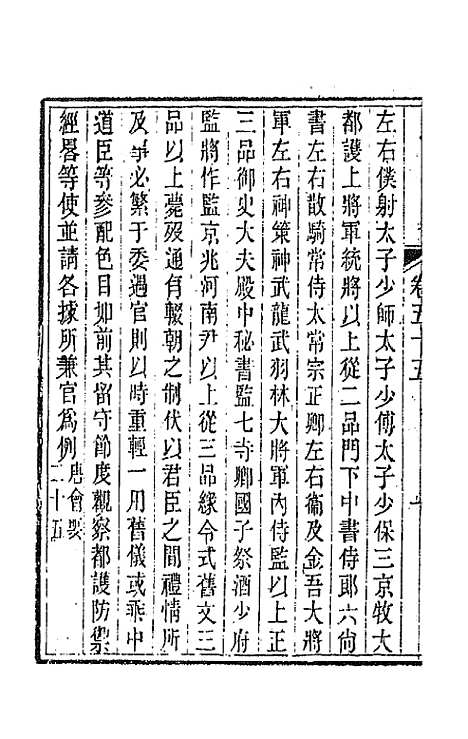 卷五十五
左右僕射太子少師太子少傅太子少保三京牧大
都護上將軍統將以上從二品門下中書侍郎六尚
書左右散騎常侍太常宗正卿左右衞及金吾大將
軍左右神策神武龍武羽林大將軍內侍監以上正
三品御史大夫殿中秘書監七寺卿國子祭酒少府
監將作監京兆河南尹以上從三品緣令式舊文三
品以上薨歿通有輟朝之制伏以君臣之間禮情所
及爭必繁于委遇官則以時重輕一用舊儀或乖中
道臣等參配色目如前其留守節度觀察都護防禦
經畧等使並請各據所兼官爲例唐會要二十五